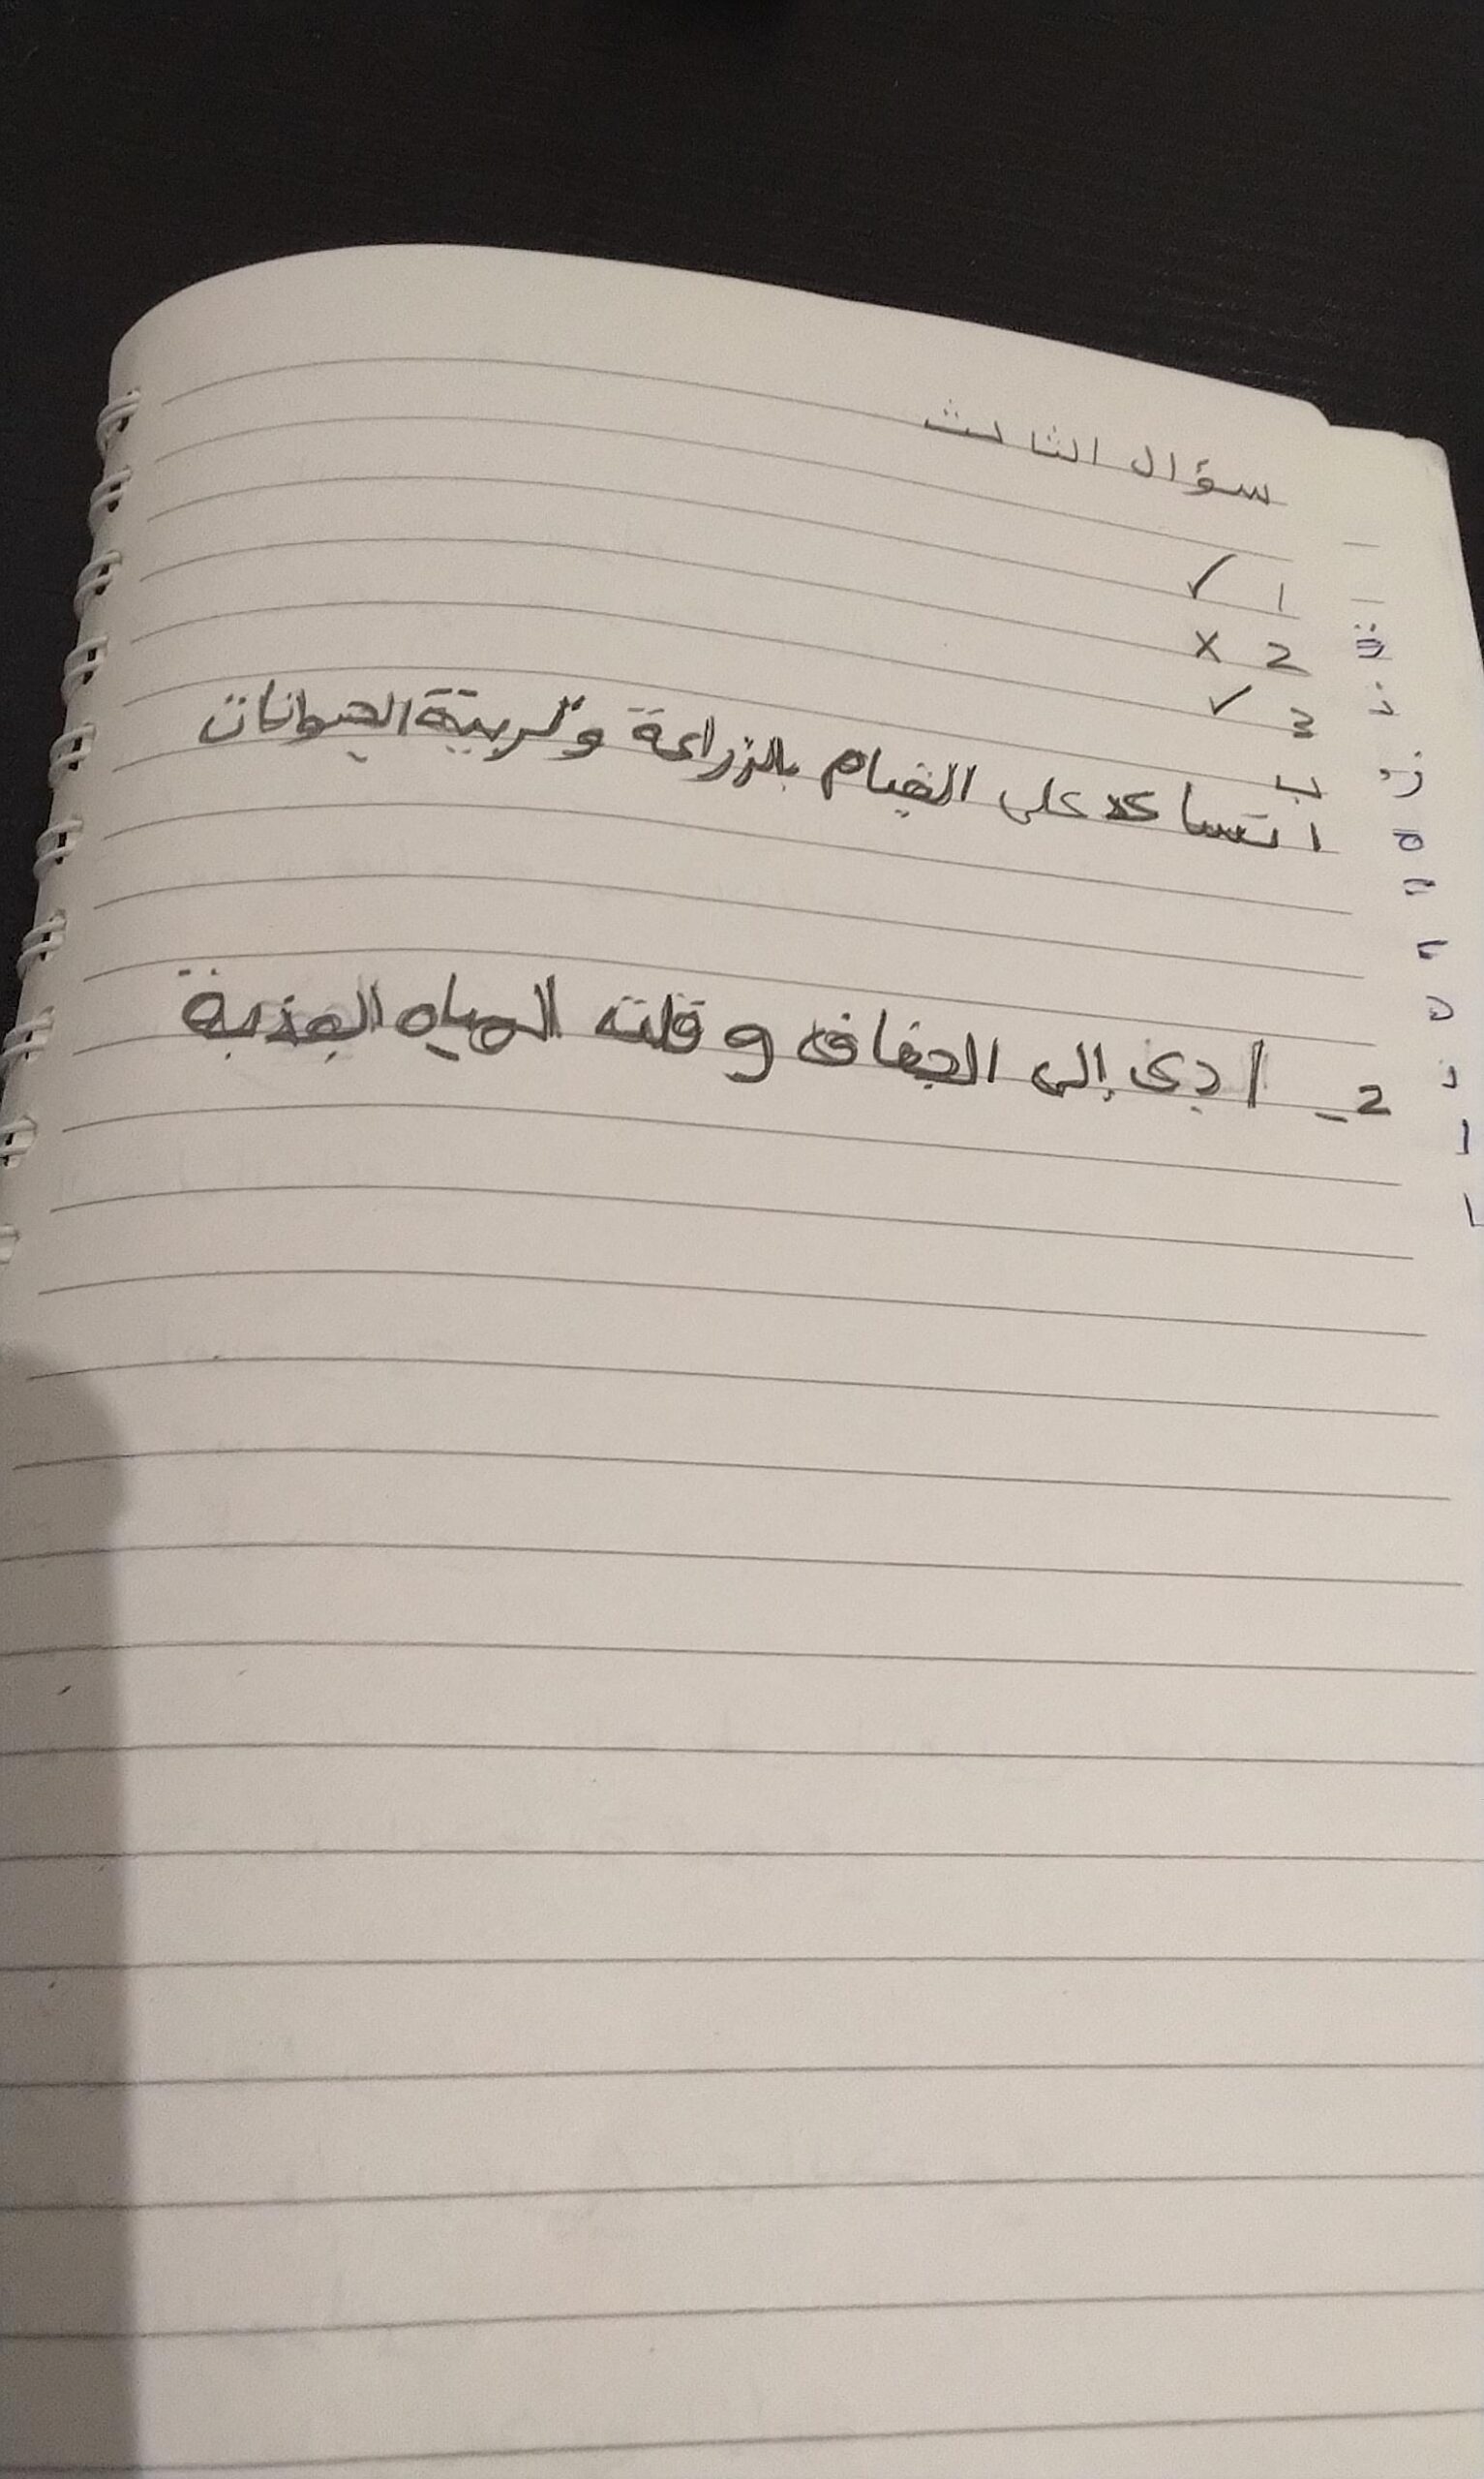 سؤال الثالث
1 ✓
2 ×
3 ✓
ب
1 تساعد على القيام بالزراعة وتربية الحيوانات
2- ادى إلى الجفاف وقلته المياه العذبة